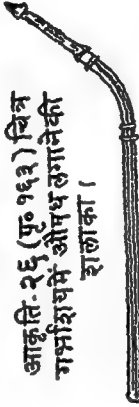 आकृति-२६ (पृ० १६३) चित्र
गर्भाशयमें औषध लगानेकी
शलाका।